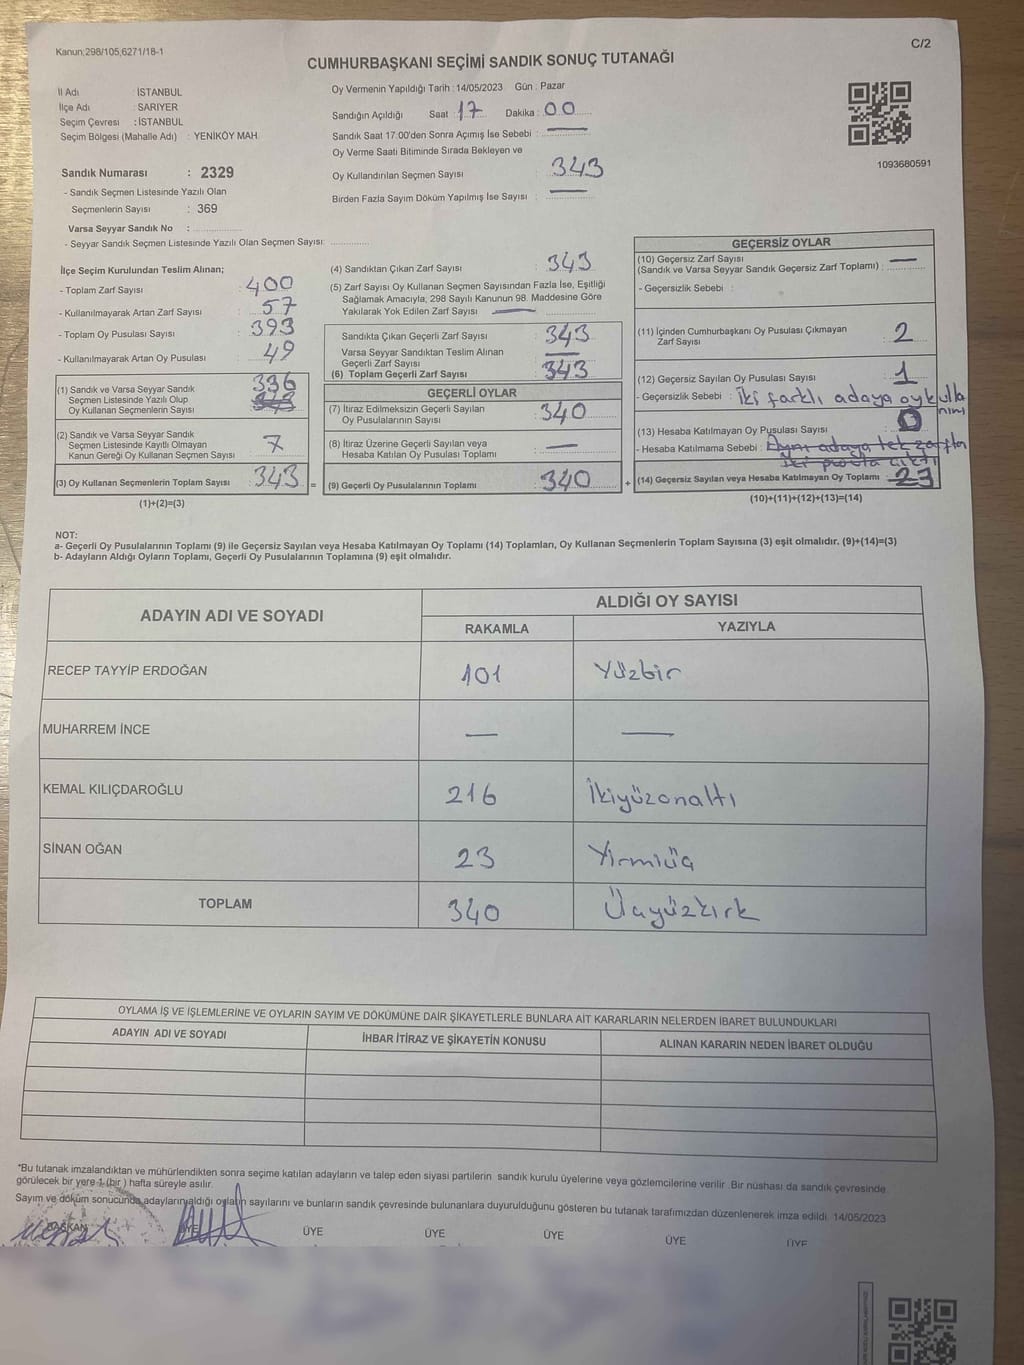 Kanun;298/105,6271/18-1
C/2
CUMHURBAŞKANI SEÇİMİ SANDIK SONUÇ TUTANAĞI
İl Adı : İSTANBUL
İlçe Adı : SARIYER
Seçim Çevresi : İSTANBUL
Seçim Bölgesi (Mahalle Adı) : YENİKÖY MAH.
Oy Vermenin Yapıldığı Tarih : 14/05/2023 Gün : Pazar
Sandığın Açıldığı Saat : 17 Dakika : 00
Sandık Saat 17:00'den Sonra Açımış İse Sebebi : —
Oy Verme Saati Bitiminde Sırada Bekleyen ve
Oy Kullandırılan Seçmen Sayısı : 343
Birden Fazla Sayım Döküm Yapılmış İse Sayısı : —
1093680591
Sandık Numarası : 2329
- Sandık Seçmen Listesinde Yazılı Olan
Seçmenlerin Sayısı : 369
Varsa Seyyar Sandık No :
- Seyyar Sandık Seçmen Listesinde Yazılı Olan Seçmen Sayısı:
İlçe Seçim Kurulundan Teslim Alınan;
- Toplam Zarf Sayısı : 400
- Kullanılmayarak Artan Zarf Sayısı : 57
- Toplam Oy Pusulası Sayısı : 393
- Kullanılmayarak Artan Oy Pusulası : 49
(1) Sandık ve Varsa Seyyar Sandık
Seçmen Listesinde Yazılı Olup
Oy Kullanan Seçmenlerin Sayısı : 336 343
(2) Sandık ve Varsa Seyyar Sandık
Seçmen Listesinde Kayıtlı Olmayan
Kanun Gereği Oy Kullanan Seçmen Sayısı : 7
(3) Oy Kullanan Seçmenlerin Toplam Sayısı : 343 =
(1)+(2)=(3)
(4) Sandıktan Çıkan Zarf Sayısı : 343
(5) Zarf Sayısı Oy Kullanan Seçmen Sayısından Fazla İse, Eşitliği
Sağlamak Amacıyla, 298 Sayılı Kanunun 98. Maddesine Göre
Yakılarak Yok Edilen Zarf Sayısı : —
Sandıkta Çıkan Geçerli Zarf Sayısı : 343
Varsa Seyyar Sandıktan Teslim Alınan
Geçerli Zarf Sayısı : —
(6) Toplam Geçerli Zarf Sayısı : 343
GEÇERLİ OYLAR
(7) İtiraz Edilmeksizin Geçerli Sayılan
Oy Pusulalarının Sayısı : 340
(8) İtiraz Üzerine Geçerli Sayılan veya
Hesaba Katılan Oy Pusulası Toplamı : —
(9) Geçerli Oy Pusulalarının Toplamı : 340 +
GEÇERSİZ OYLAR
(10) Geçersiz Zarf Sayısı
(Sandık ve Varsa Seyyar Sandık Geçersiz Zarf Toplamı) : —
- Geçersizlik Sebebi :
(11) İçinden Cumhurbaşkanı Oy Pusulası Çıkmayan
Zarf Sayısı : 2
(12) Geçersiz Sayılan Oy Pusulası Sayısı : 1
- Geçersizlik Sebebi : İki farklı adaya oy kulla
nımı
(13) Hesaba Katılmayan Oy Pusulası Sayısı : 0
- Hesaba Katılmama Sebebi : Aynı adaya tek zarftan
iki pusula çıktı
(14) Geçersiz Sayılan veya Hesaba Katılmayan Oy Toplamı : 3
(10)+(11)+(12)+(13)=(14)
NOT:
a- Geçerli Oy Pusulalarının Toplamı (9) ile Geçersiz Sayılan veya Hesaba Katılmayan Oy Toplamı (14) Toplamları, Oy Kullanan Seçmenlerin Toplam Sayısına (3) eşit olmalıdır. (9)+(14)=(3)
b- Adayların Aldığı Oyların Toplamı, Geçerli Oy Pusulalarının Toplamına (9) eşit olmalıdır.
ADAYIN ADI VE SOYADI
ALDIĞI OY SAYISI
RAKAMLA YAZIYLA
RECEP TAYYİP ERDOĞAN 101 Yüzbir
MUHARREM İNCE — —
KEMAL KILIÇDAROĞLU 216 İkiyüzonaltı
SİNAN OĞAN 23 Yirmiüç
TOPLAM 340 Üçyüzkırk
OYLAMA İŞ VE İŞLEMLERİNE VE OYLARIN SAYIM VE DÖKÜMÜNE DAİR ŞİKAYETLERLE BUNLARA AİT KARARLARIN NELERDEN İBARET BULUNDUKLARI
ADAYIN ADI VE SOYADI İHBAR İTİRAZ VE ŞİKAYETİN KONUSU ALINAN KARARIN NEDEN İBARET OLDUĞU
*Bu tutanak imzalandıktan ve mühürlendikten sonra seçime katılan adayların ve talep eden siyasi partilerin sandık kurulu üyelerine veya gözlemcilerine verilir .Bir nüshası da sandık çevresinde
görülecek bir yere 1 (bir ) hafta süreyle asılır.
Sayım ve döküm sonucunda adayların aldığı oyların sayılarını ve bunların sandık çevresinde bulunanlara duyurulduğunu gösteren bu tutanak tarafımızdan düzenlenerek imza edildi. 14/05/2023
BAŞKAN ÜYE ÜYE ÜYE ÜYE ÜYE ÜYE